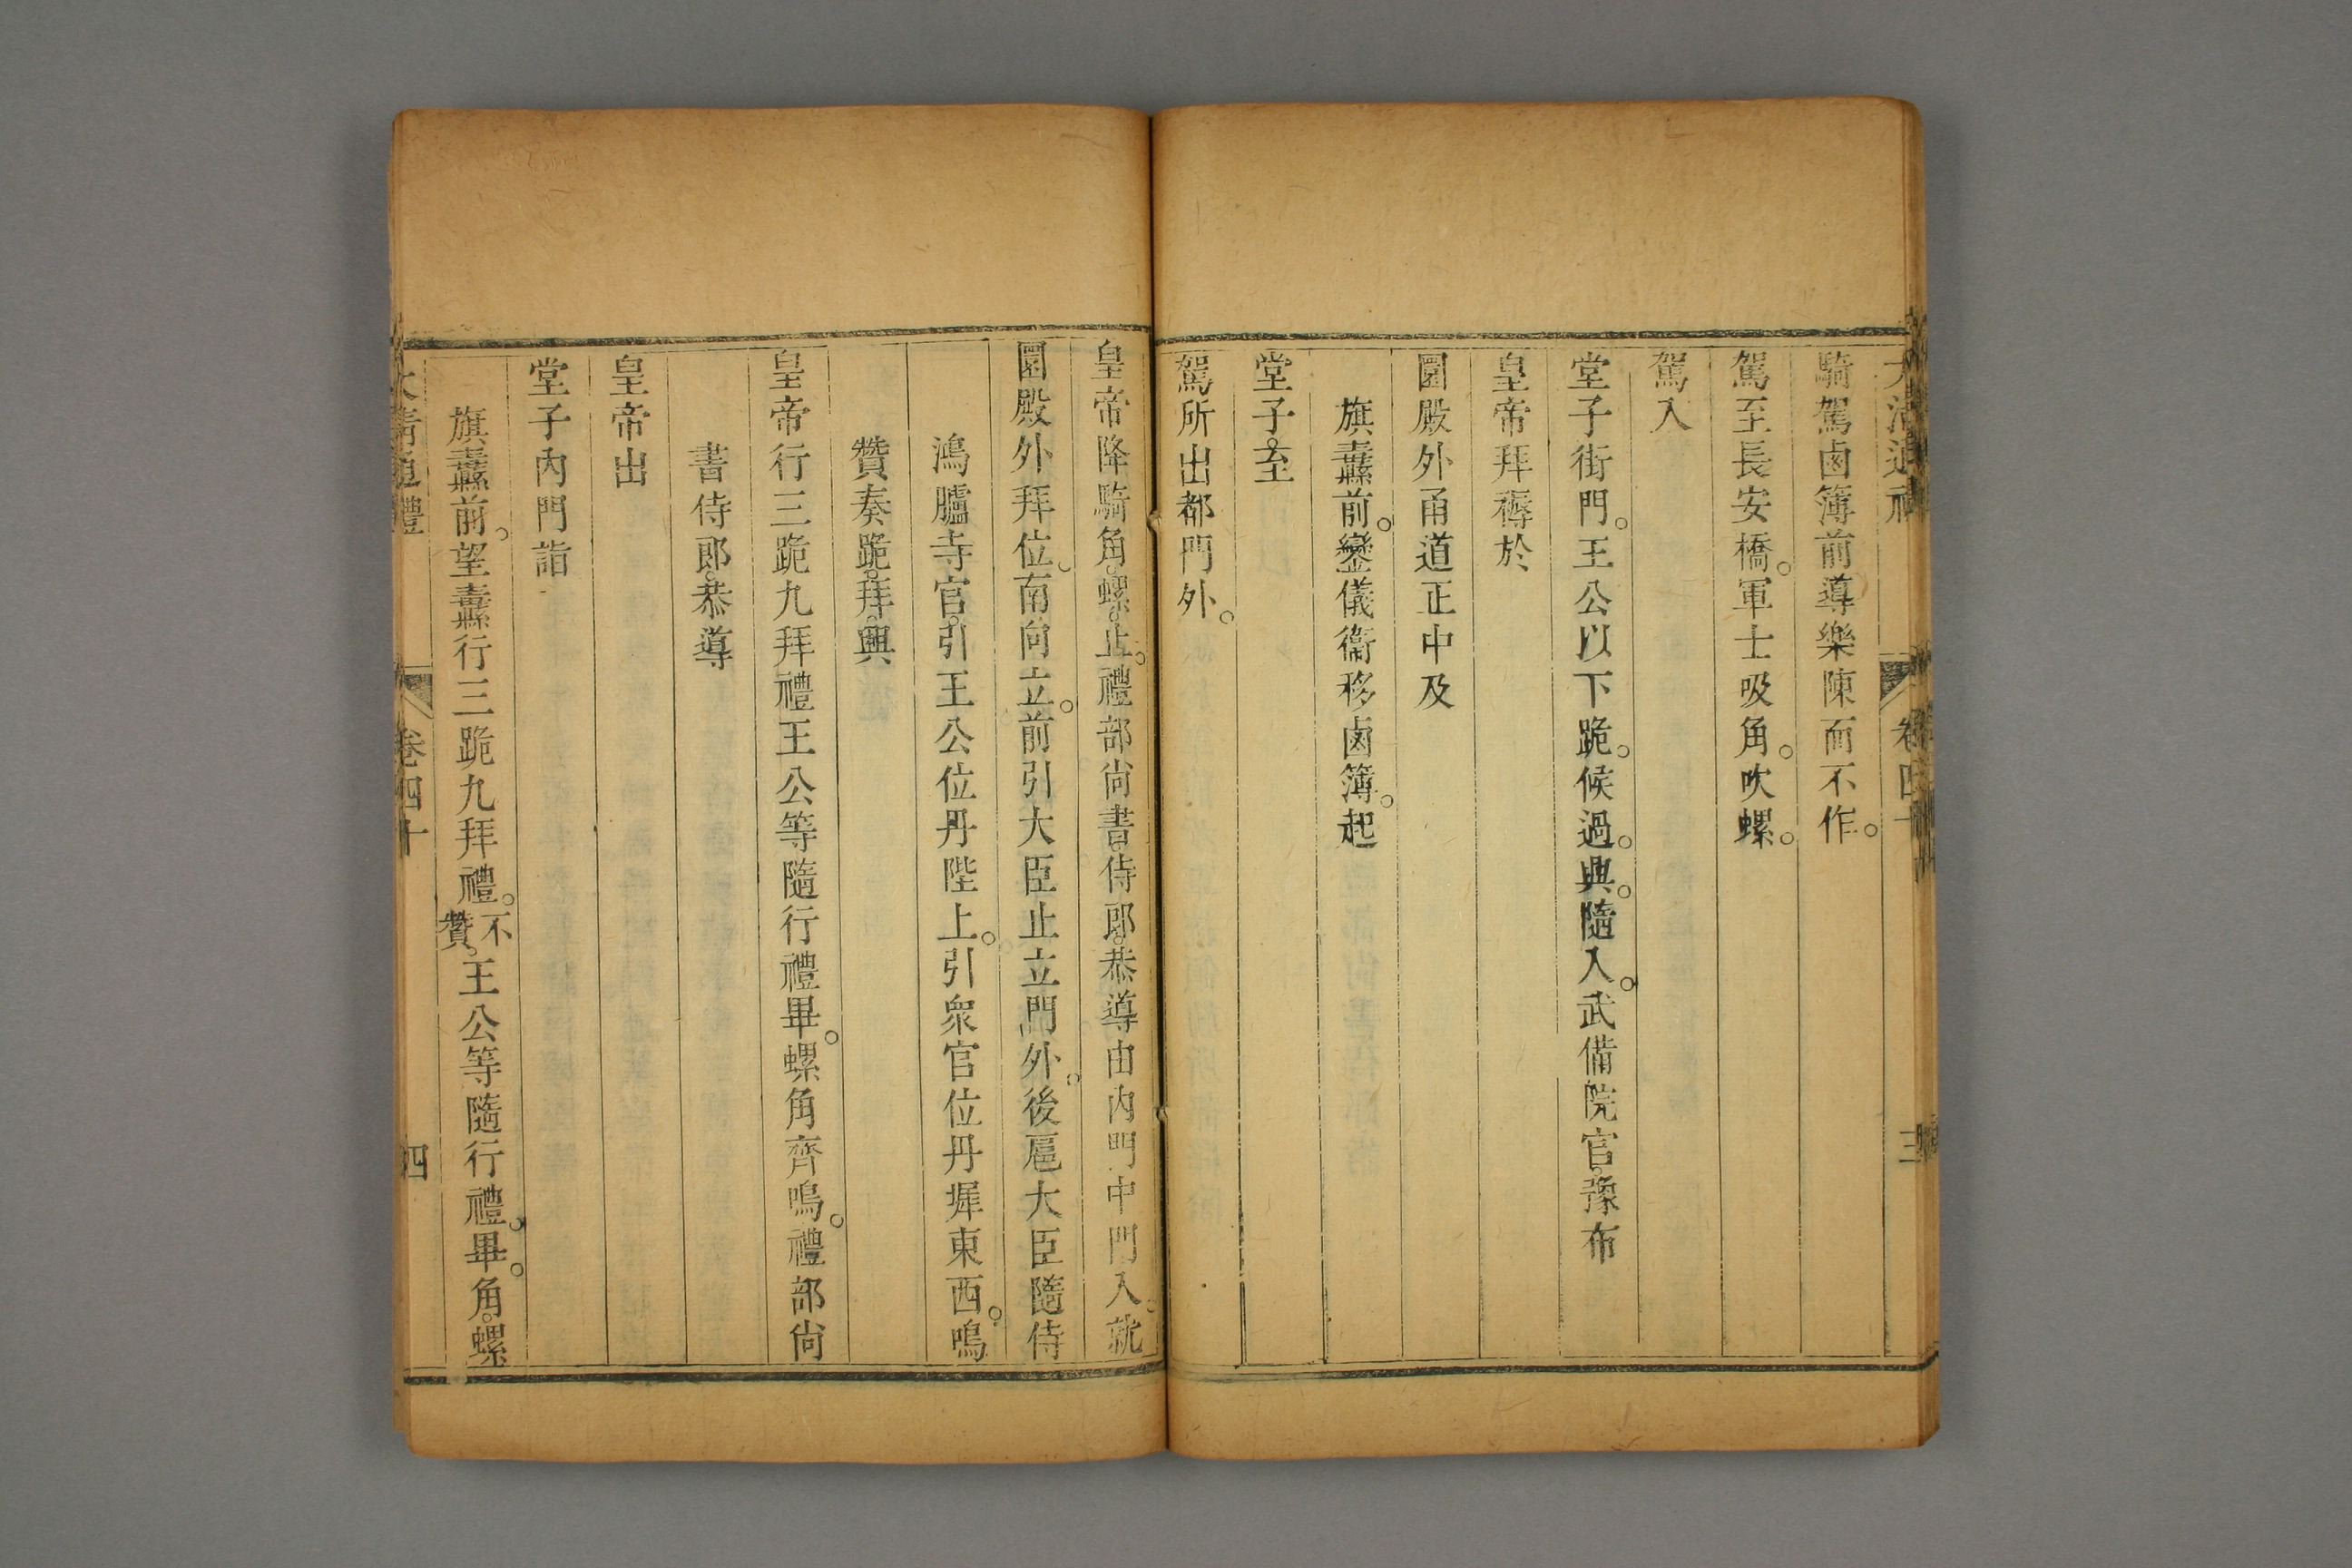 大清通禮 卷四十 三
騎駕鹵簿前導樂陳而不作。
駕至長安橋。軍士吸角。吹螺。
駕入
堂子街門。王公以下跪。候過。興。隨入。武備院官。豫布
皇帝拜褥於
圜殿外甬道正中及
旗纛前。鑾儀衞移鹵簿。起
堂子。至
駕所出都門外。
皇帝降騎。角。螺。止。禮部尙書。侍郎。恭導由內門中門入。就
圜殿外拜位。南向立。前引大臣止立門外。後扈大臣隨侍
鴻臚寺官。引王公位丹陛上。引衆官位丹墀東西。鳴
贊奏跪。拜。興
皇帝行三跪九拜禮王公等隨行禮畢。螺角齊鳴。禮部尙
書侍郎。恭導
皇帝出
堂子內門詣
旗纛前。望纛行三跪九拜禮。不贊。王公等隨行禮。畢。角。螺
大清通禮 卷四十 四